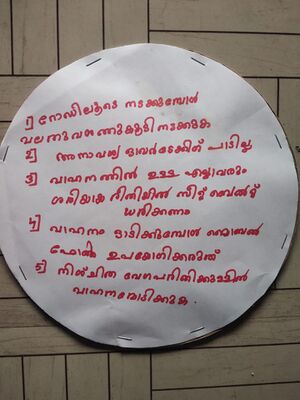 1) റോഡിലൂടെ നടക്കുമ്പോൾ
വലതുവശത്തുകൂടി നടക്കുക
2) അനാവശ്യ ഓവർടേക്കിങ് പാടില്ല
3) വാഹനത്തിൽ ഉള്ള എല്ലാവരും
ശരിയായ രീതിയിൽ സീറ്റ് ബെൽറ്റ്
ധരിക്കണം
4) വാഹനം ഓടിക്കുമ്പോൾ മൊബൈൽ
ഫോൺ ഉപയോഗിക്കരുത്
5) നിശ്ചിത വേഗപരിതിക്കുള്ളിൽ
വാഹനമോടിക്കുക.